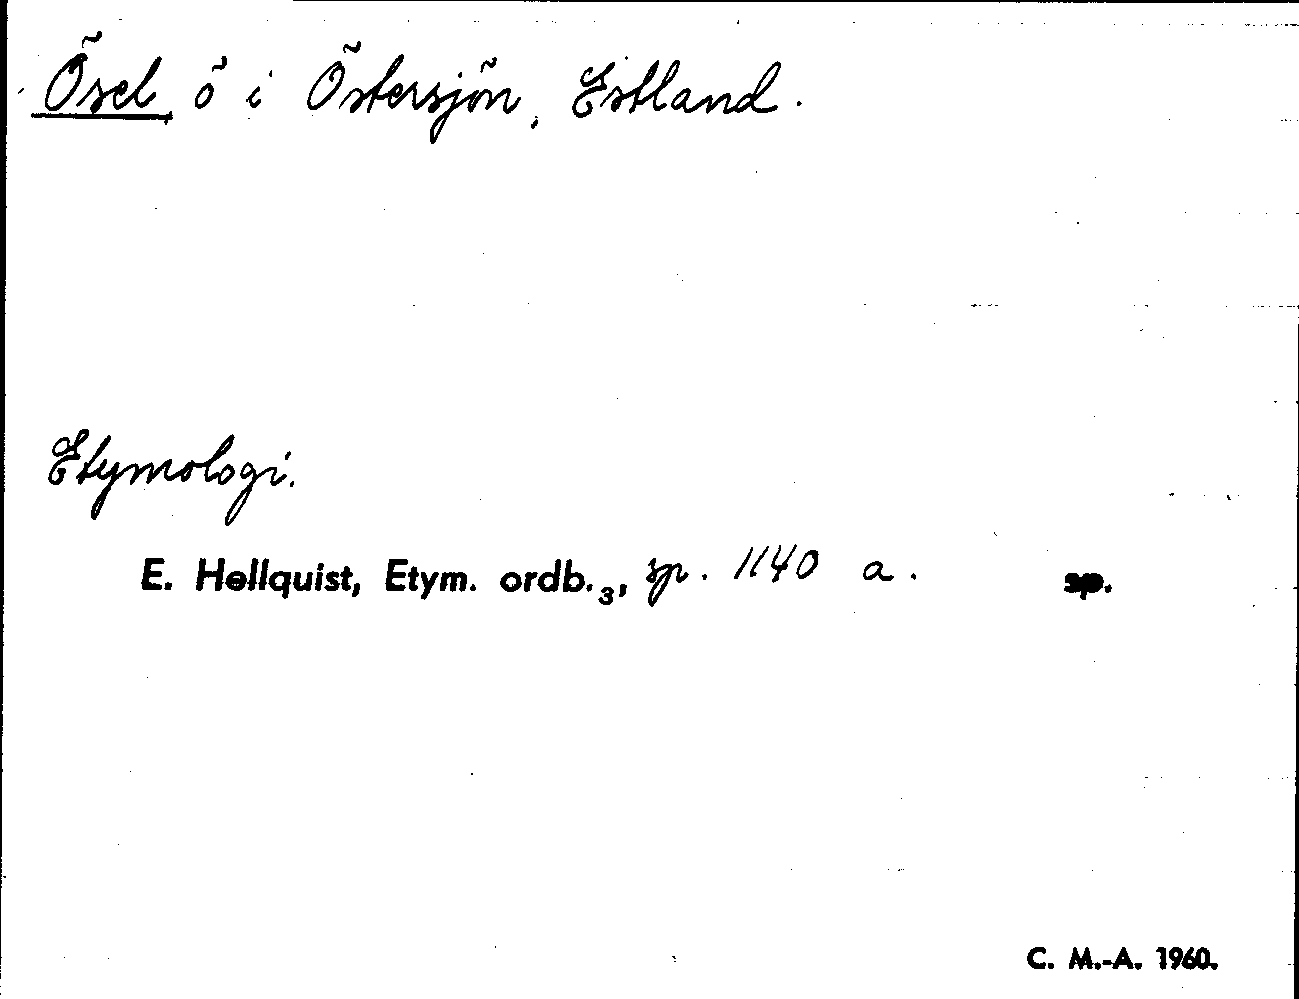 Ösel, ö i Östersjön, Estland.
Etymologi.
E. Hellquist, Etym. ordb.₃, sp. 1140 a. sp.
C. M.-A. 1960.